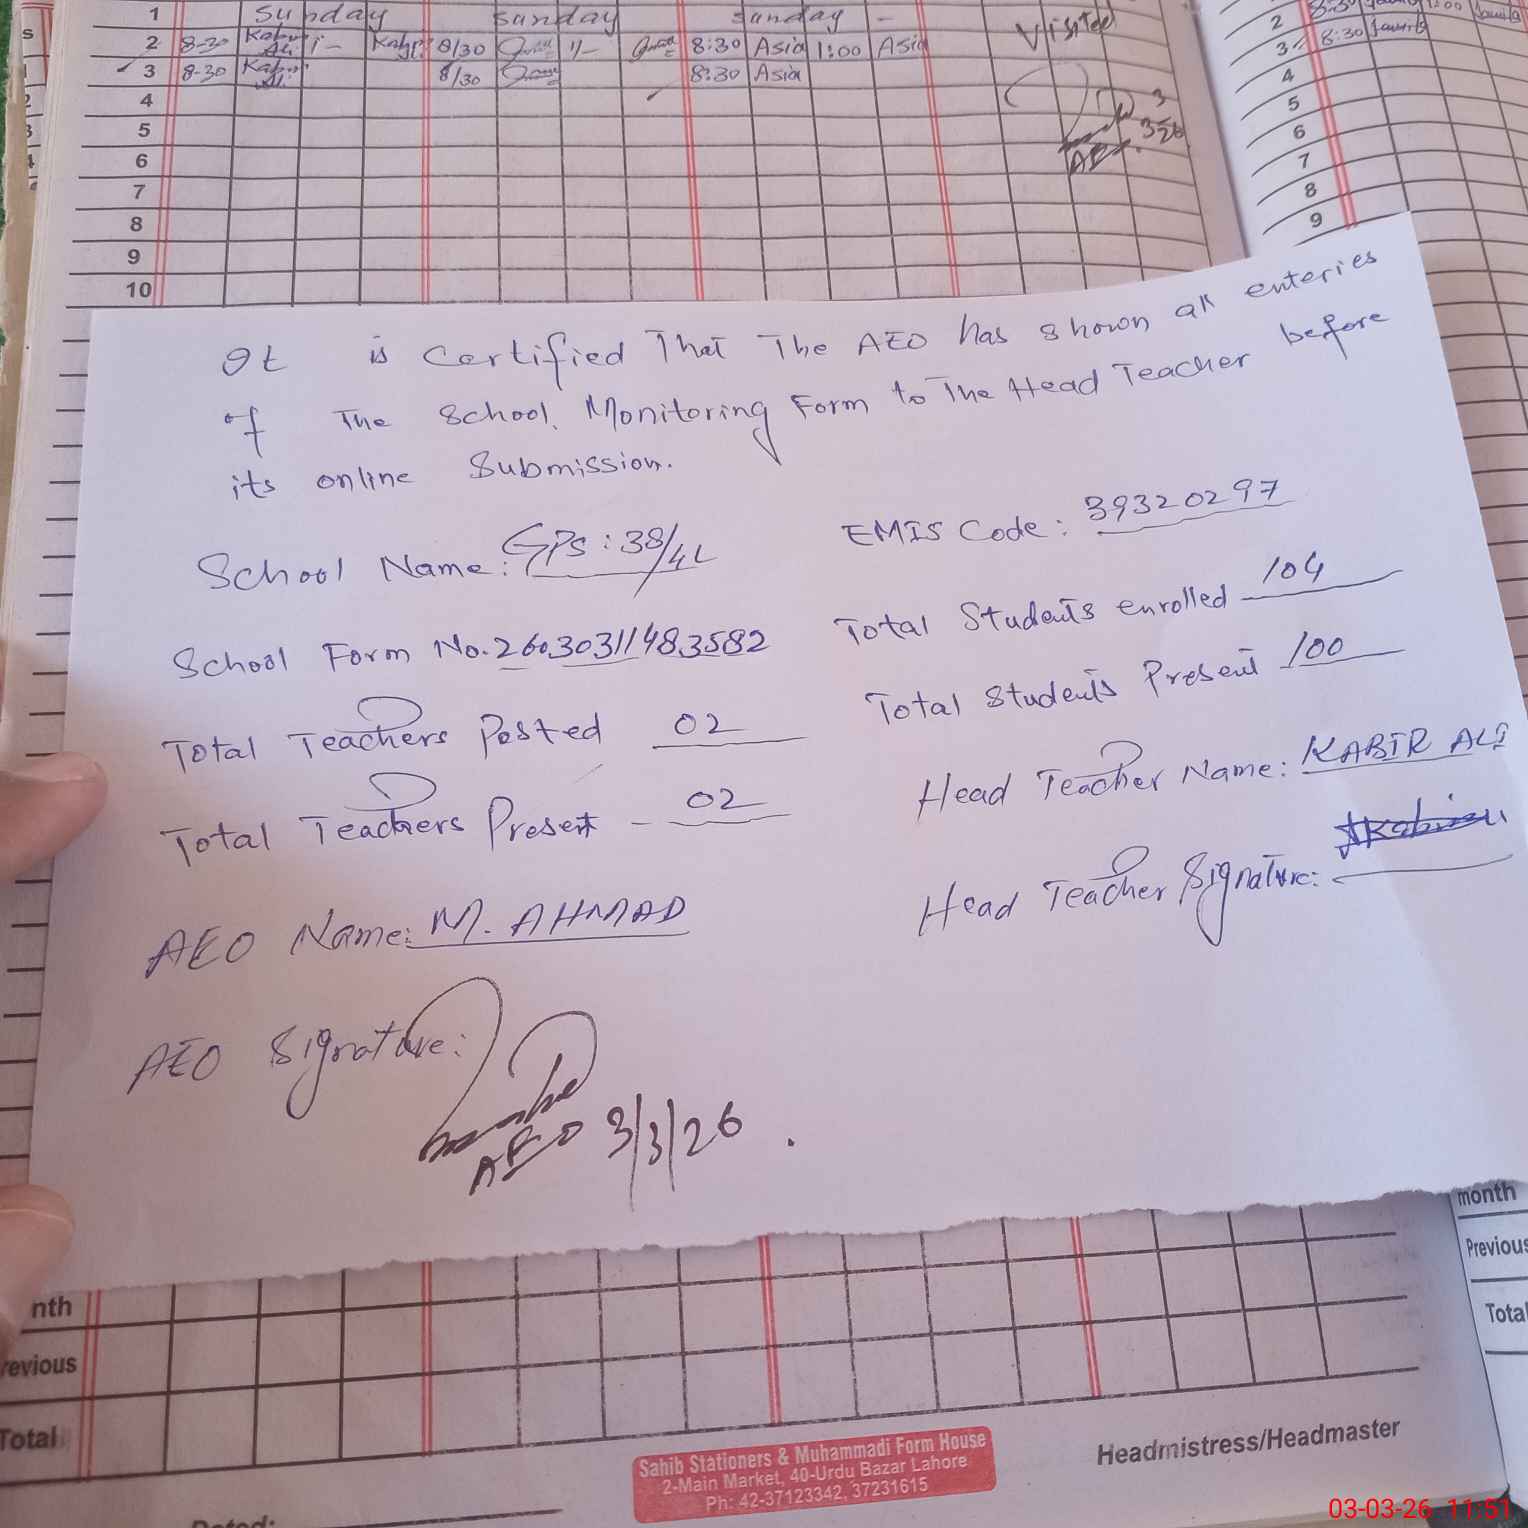 1 Sunday Sunday Sunday -
2 8-30 Kabir Ali 8/30 8:30 Asia 1:00 Asia Visited
3 8-30 Kabir Ali 8/30 8:30 Asia
4
5
6
7
8
9
10
2
3 8:30
4
5
6
7
8
9
It is Certified That The AEO has shown all enteries
of The School Monitoring Form to The Head Teacher before
its online Submission.
School Name: GPS: 38/4L EMIS Code: 39320297
School Form No. 26030311483582 Total Students enrolled 104
Total Teachers Posted 02 Total Students Present 100
Total Teachers Present - 02 Head Teacher Name: KABIR ALI
AEO Name: M. AHMAD Head Teacher Signature:
AEO Signature:
AEO 3/3/26
month
Previous
Total
nth
revious
Total
Sahib Stationers & Muhammadi Form House
2-Main Market, 40-Urdu Bazar Lahore
Ph: 42-37123342, 37231615
Headmistress/Headmaster
Dated:
03-03-26 11:51